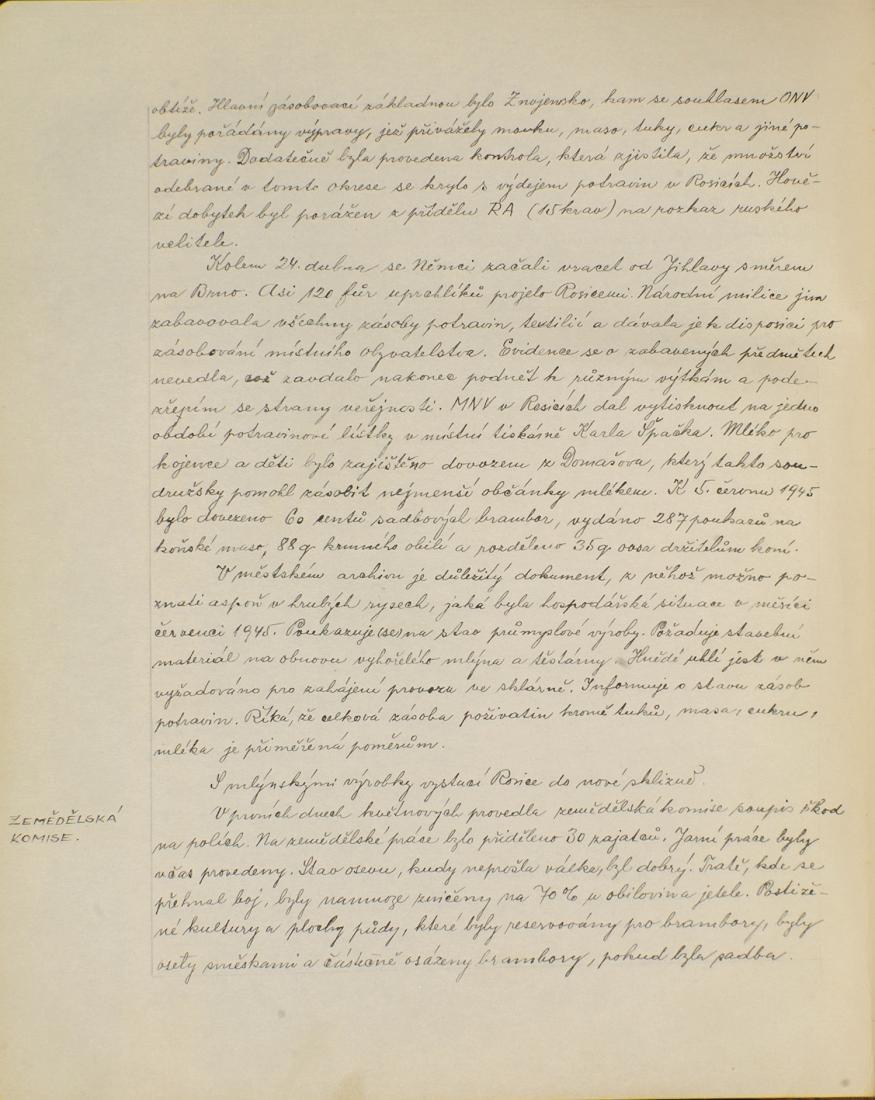 obtíže. Hlavní zásobovací základnou bylo Znojemsko, kam se souhlasem ONV
byly pořádány výpravy, jež přivážely mouku, maso, tuky, cukr a jiné po-
traviny. Dodatečně byla provedena kontrola, která zjistila, že množství
odebrané v tomto okrese se krylo s výdejem potravin v Rosicích. Hově-
zí dobytek byl porážen z přídělu RA (15 krav) na rozkaz ruského
velitele.
Kolem 24. dubna se Němci začali vracet od Jihlavy směrem
na Brno. Asi 120 fůr uprchlíků projelo Rosicemi. Národní milice jim
zabavovala všechny zásoby potravin, textilií a dávala je k disposici pro
zásobování místního obyvatelstva. Evidence se o zabavených předmětech
nevedla, což zavdalo nakonec podnět k různým výtkám a pode-
zřením se strany veřejnosti. MNV v Rosicích dal vytisknout na jedno
období potravinové lístky v místní tiskárně Karla Špačka. Mléko pro
kojence a děti bylo zajištěno dovozem z Domašova, který takto sou-
družsky pomohl zásobit nejmenší občánky mlékem. K 5. červnu 1945
bylo dovezeno 60 centů sadbových brambor, vydáno 287 poukazů na
koňské maso, 88 q krmného obilí a rozděleno 35 q ovsa držitelům koní.
V městském archivu je důležitý dokument, z něhož možno po-
znati aspoň v hrubých rysech, jaká byla hospodářská situace v měsíci
červenci 1945. Poukazuje (se) na stav průmyslové výroby. Požaduje stavební
materiál na obnovu vyhořelého mlýna a těstárny. Hnědé uhlí jest v něm
vyžadováno pro zahájení provozu ve sklárně. Informuje o stavu zásob
potravin. Říká, že celková zásoba poživatin kromě tuků, masa, cukru,
mléka je přiměřená poměrům.
S mlýnskými výrobky vystačí Rosice do nové sklizně.
ZEMĚDĚLSKÁ
KOMISE.
V prvních dnech květnových provedla zemědělská komise soupis škod
na polích. Na zemědělské práce bylo přiděleno 30 zajatců. Jarní práce byly
včas provedeny. Stav osevu, kudy neprošla válka, byl dobrý. Tratě, kde se
přehnal boj, byly namnoze zničeny na 70% u obilovin a jetele. Postiže-
né kultury a plochy půdy, které byly reservovány pro brambory, byly
osety směskami a částečně osázeny brambory, pokud byla sadba.